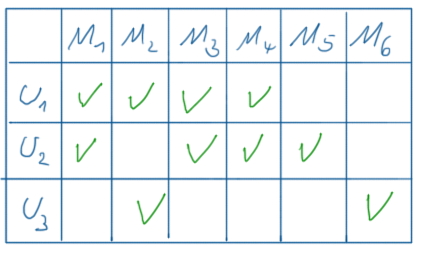 M₁ M₂ M₃ M₄ M₅ M₆
U₁ ✓ ✓ ✓ ✓
U₂ ✓ ✓ ✓ ✓
U₃ ✓ ✓